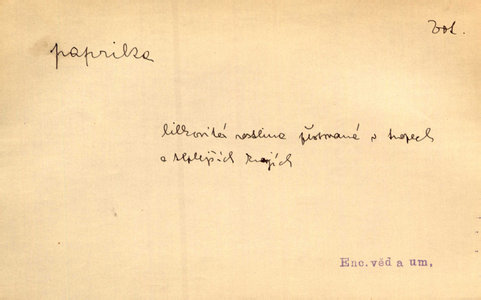 Bot.
paprika
lilkovitá rostlina pěstovaná v tropech
a teplejších krajích
Enc. věd a um,